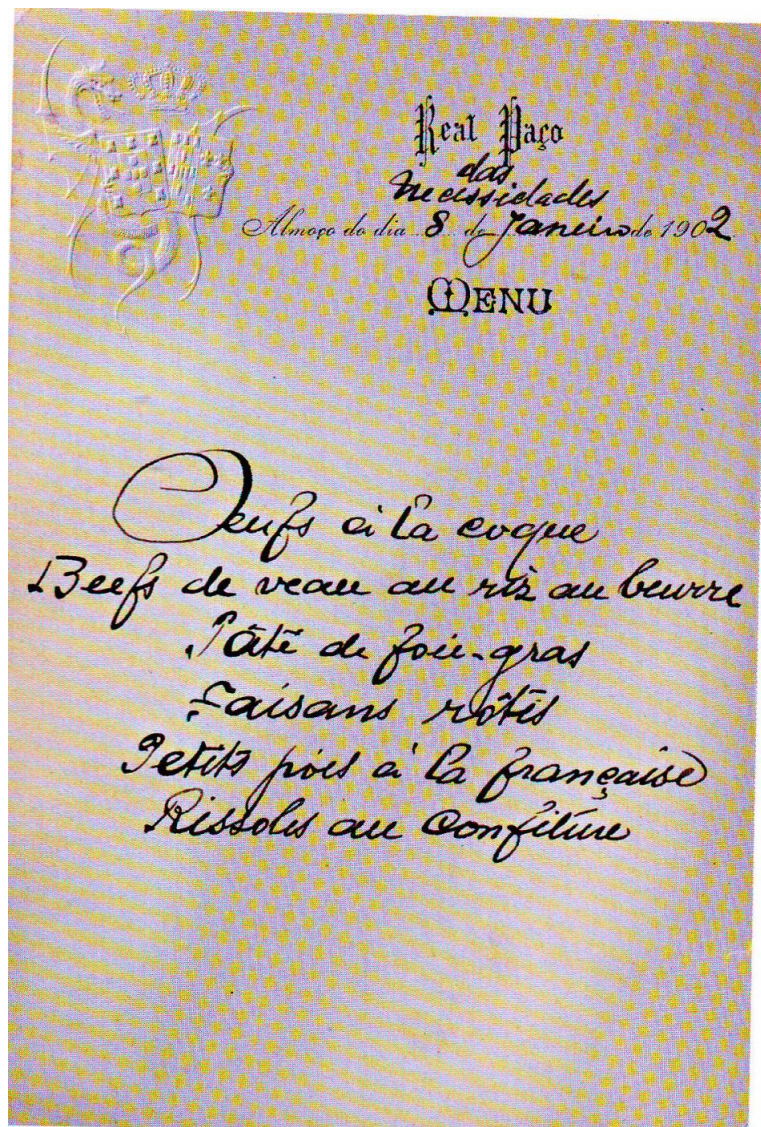 Real Paço
das
Necessidades
Almoço do dia 8 de Janeiro de 1902
MENU
Oeufs à la coque
Beefs de veau au riz au beurre
Pâté de foie-gras
Faisans rôtis
Petits pois à la française
Rissoles au Confiture